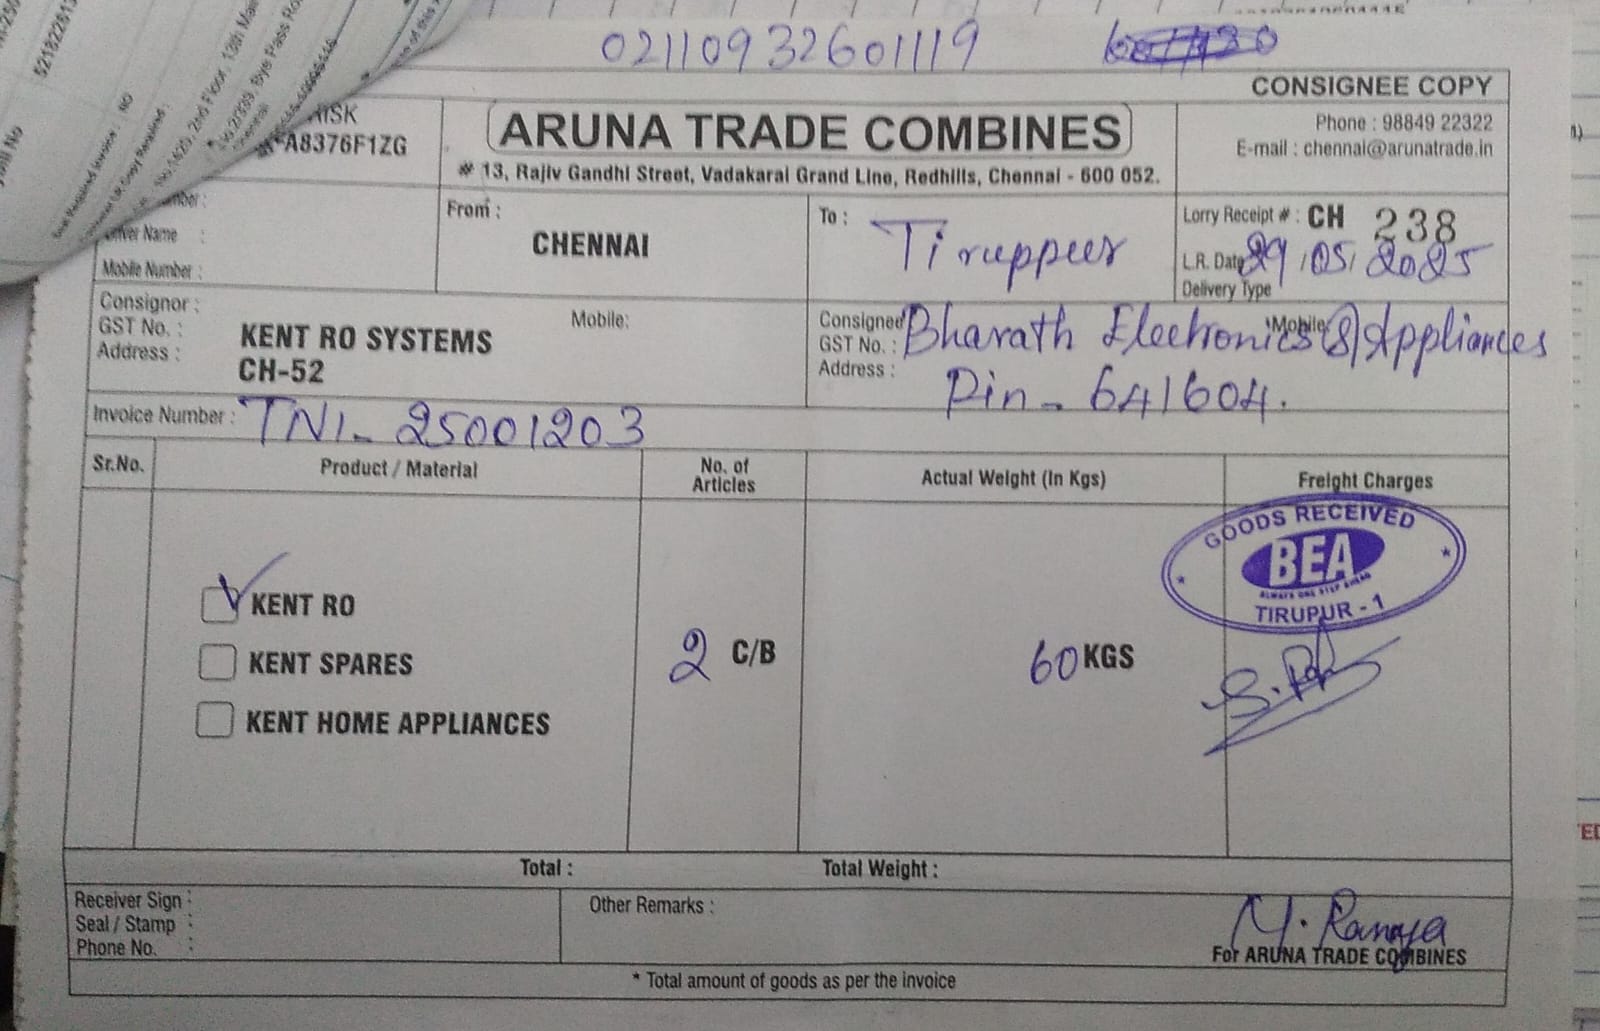 02110932601119
CONSIGNEE COPY
RISK
A8376F1ZG
ARUNA TRADE COMBINES
# 13, Rajiv Gandhi Street, Vadakarai Grand Line, Redhills, Chennai - 600 052.
Phone : 98849 22322
E-mail : chennai@arunatrade.in
Driver Name :
Mobile Number :
From :
CHENNAI
To : Tiruppur
Lorry Receipt # : CH 238
L.R. Date 29/05/2025
Delivery Type
Consignor :
GST No. :
Address :
KENT RO SYSTEMS
CH-52
Mobile:
Consignee Bharath Electronics & Appliances
Mobile
GST No. :
Address : Pin - 641604.
Invoice Number : TN1 - 25001203
Sr.No. Product / Material No. of Articles Actual Weight (In Kgs) Freight Charges
KENT RO
KENT SPARES
KENT HOME APPLIANCES
2 C/B
60 KGS
GOODS RECEIVED
BEA
ALWAYS ONE STEP AHEAD
TIRUPUR - 1
Total : Total Weight :
Receiver Sign :
Seal / Stamp :
Phone No. :
Other Remarks :
For ARUNA TRADE COMBINES
* Total amount of goods as per the invoice